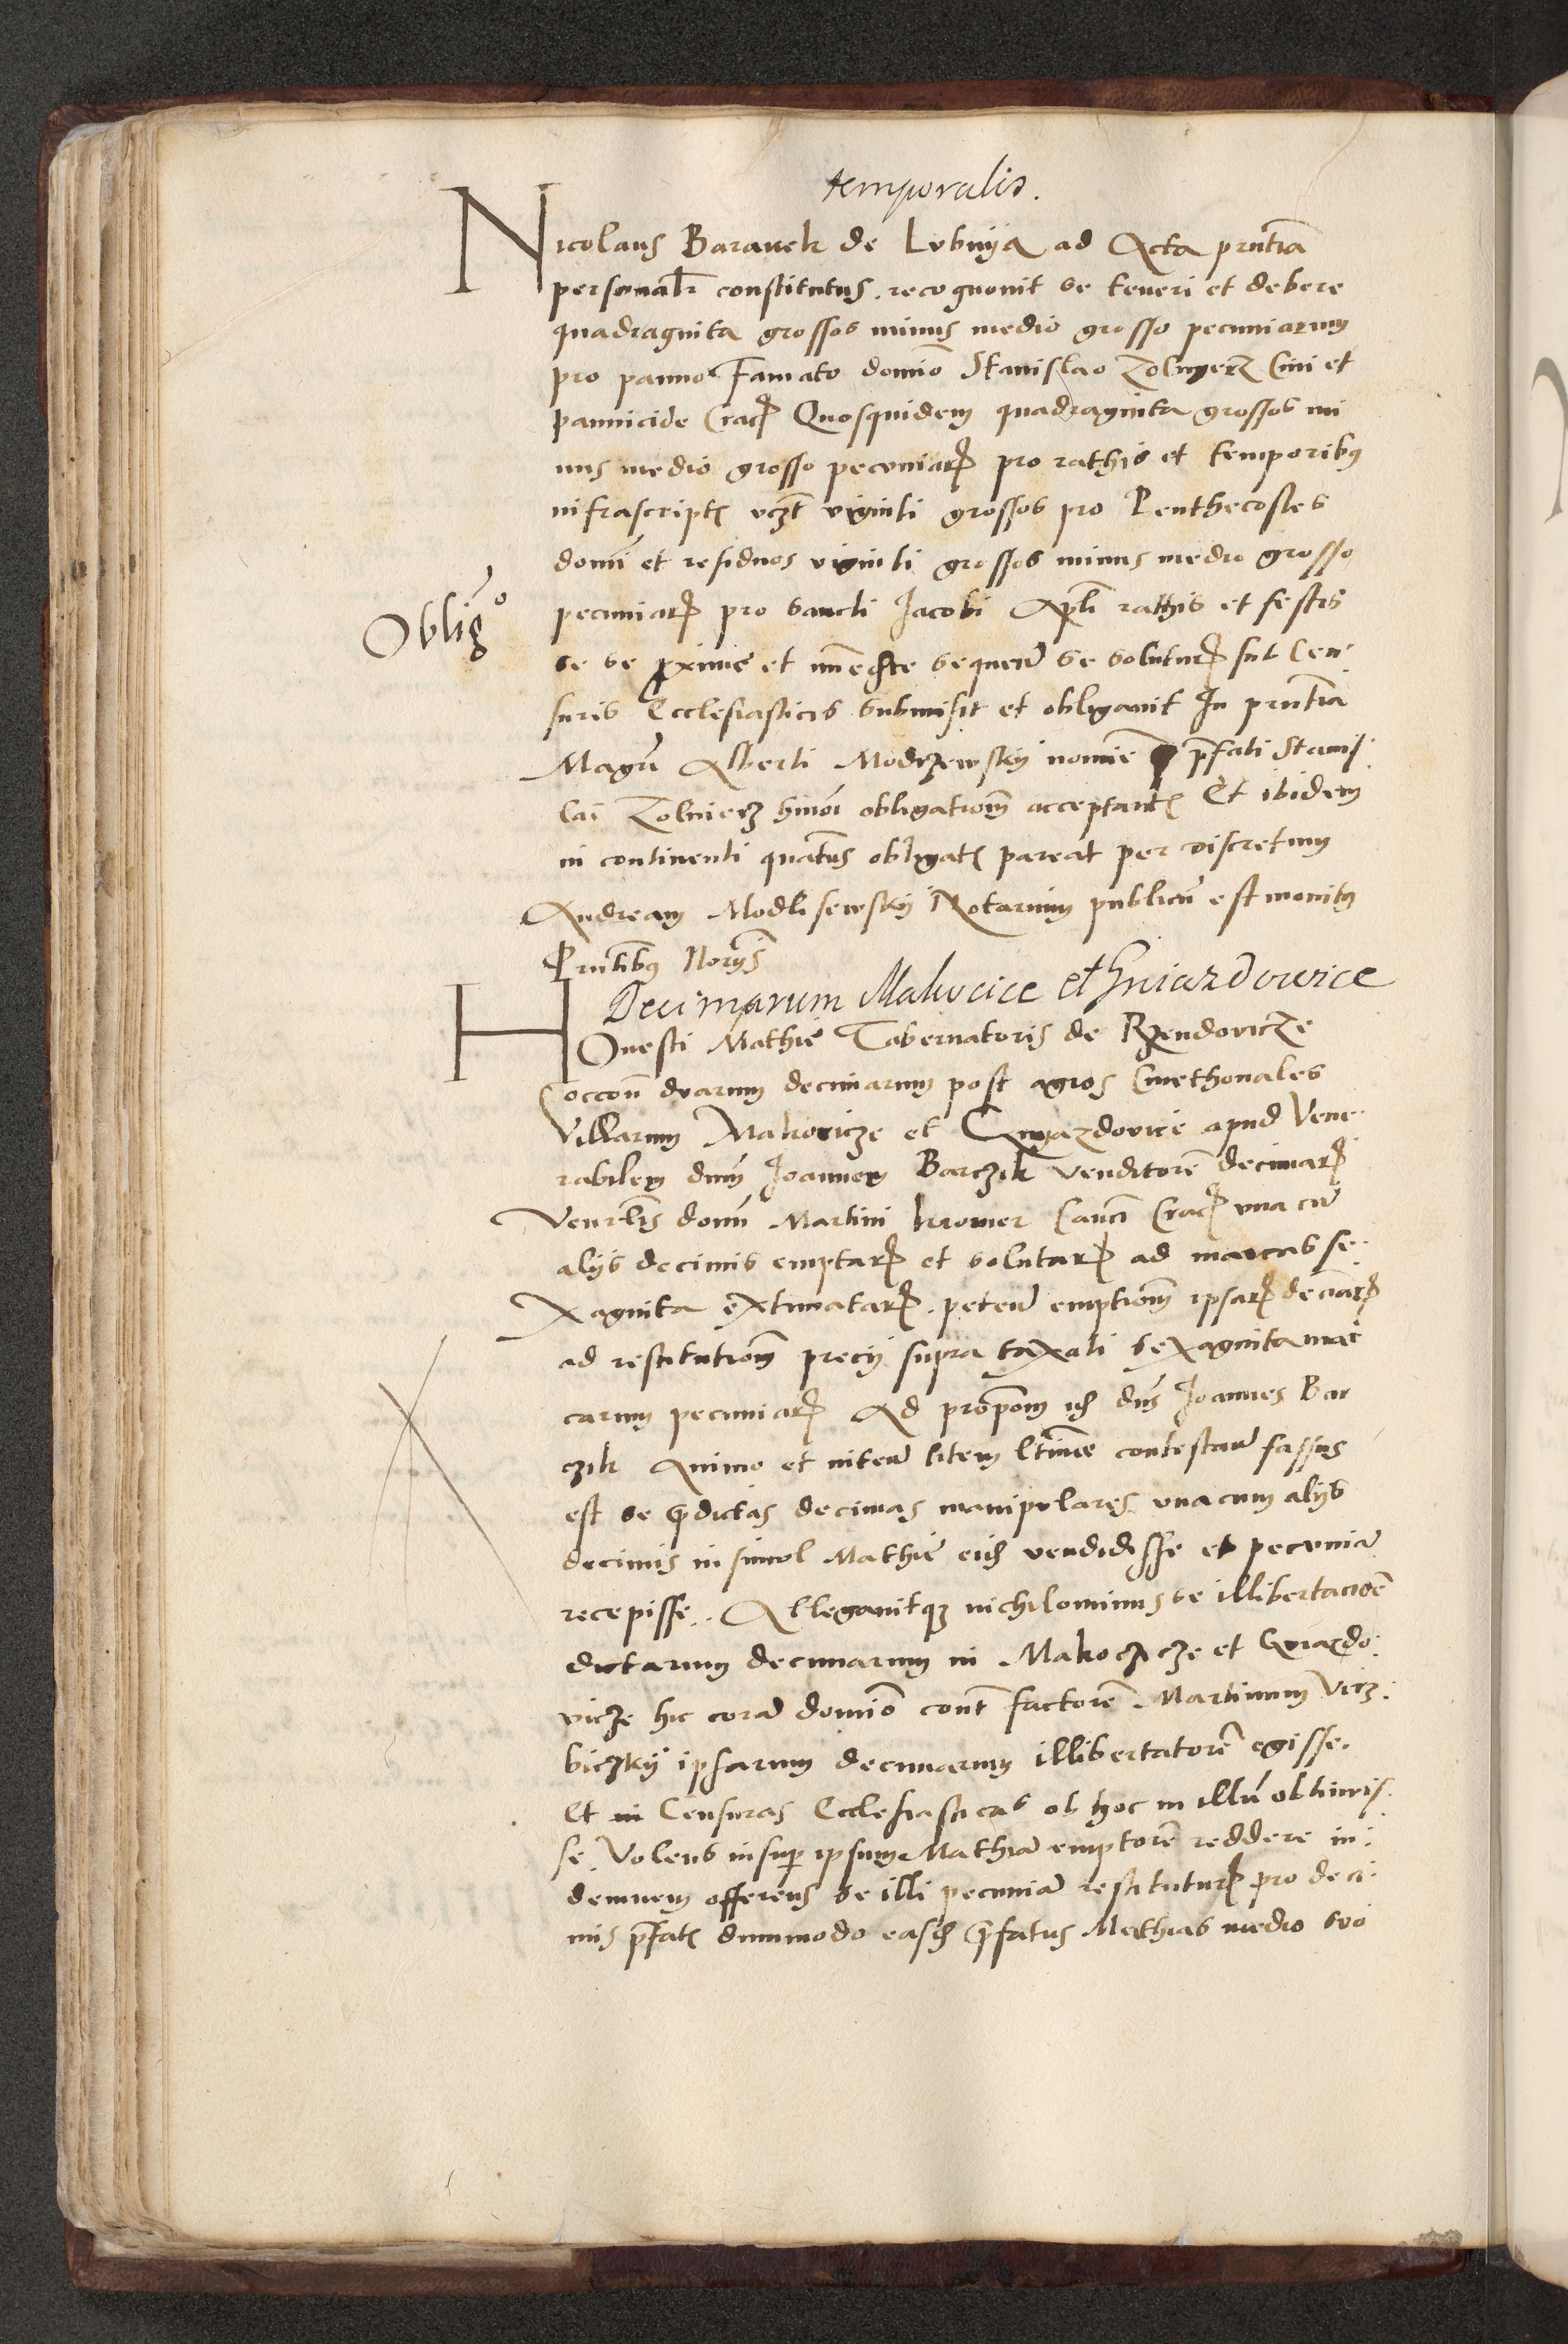 temporalis.
Nicolaus Baranek de Lubnya ad Acta pñtia
personalr constitutus. recognouit se teneri et debere
quadraginta grossos minus medio grosso pecuniarum
pro panno Famato domio Stanislao Zolnyerz Ciui et
pannicide Crac Quosquidem quadraginta grossos mi
nus medio grosso pecuniar pro rathis et temporibus
infrascript vczt viginti grossos pro Penthecostes
domi et residuos viginti grossos minus medio grosso
Obligo
pecuniar pro sancti Jacobi Apli rathis et festis
se se proxime et imediate sequen se solutur sub Cen:
suris Ecclesiasticis submisit et obligauit In pñtia
Magri Alberti Modrzewsky nomie pfati Stanis:
lai Zolnierz hmoi obligationem acceptant Et ibidem
in continenti quatenus obligat pareat per discretum
Andream Modlisewsky Notarium publicu est monitus
Pñtibus Norijs
Decimarum Makocice et Gniazdowice
HOnesti Mathie Tabernatoris de Rzendovicze
occoñ duarum decimarum post agros Cmethonales
Villarum Makocicze et Gnyazdovice apud Vene:
rabilem dnm Joannem Barczik venditore decimar
Venrlis domi Martini kromer Canci Crac vna cu
alijs decimis emptar et solutar ad marcas se:
xaginta extimatar. peten emptionem ipsar decimar
ad restitutionem precij supra taxati sexaginta mar
carum pecuniar Ad propom id dns Joannes Bar
czik Animo et inten litem ltime contestan fassus
est se predictas decimas manipulares vna cum alijs
decimis in simul Mathie eid vendidisse et pecunia
recepisse. Allegauitque nichilominus se illibertacioe
dictarum decimarum in Makoczicze et Gniazdo:
vicze hic cora domio cont factore Martinum Virz:
biczky ipsarum decimarum illibertatore egisse.
Et in Censuras Ecclesiasticas ob hoc in illu obtinuis:
se. Volens insup ipsum Mathia emptore reddere in:
demnem offerens se illi pecunia restitutur pro deci:
mis pfat dummodo easd prefatus Mathias medio suo